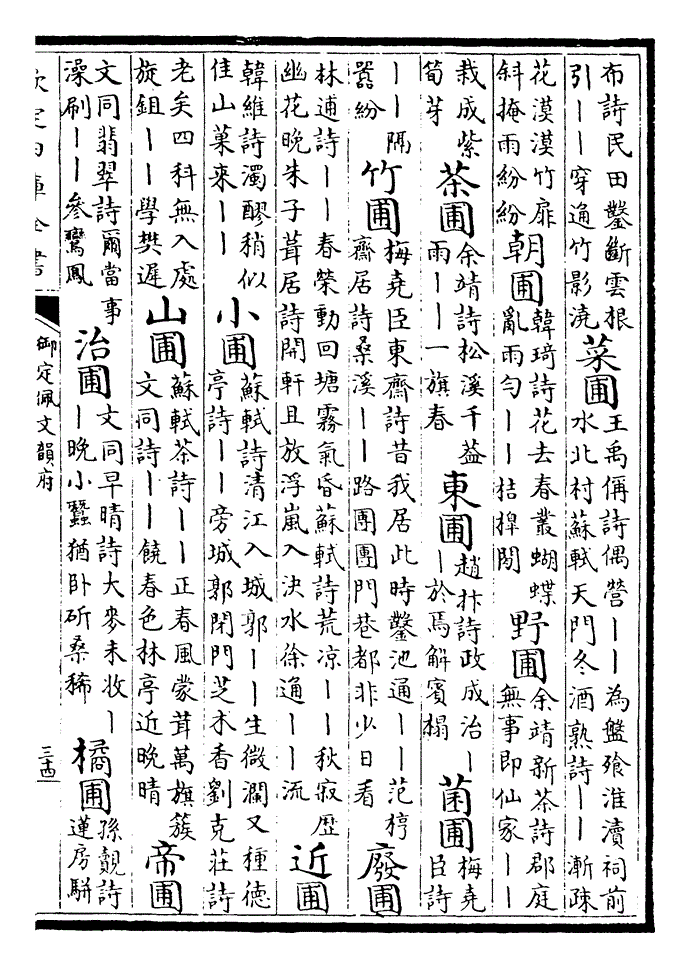 布詩民田鑿斷雲根
引——穿通竹影澆
菜圃
王禹偁詩偶營——為盤飧淮瀆祠前
水北村蘇軾天門冬酒熟詩——漸踈
花漠漠竹扉
斜掩雨紛紛
朝圃
韓琦詩花去春叢蝴蝶
亂雨勻——桔槹閑
野圃
余靖新茶詩郡庭
無事即仙家——
栽成紫
筍芽
茶圃
余靖詩松溪千葢
雨——一旗春
東圃
趙抃詩政成治—
—於焉解賓榻
菌圃
梅堯
臣詩
——隔
囂紛
竹圃
梅堯臣東齋詩昔我居此時鑿池通——范梈
齋居詩桑溪——路團團門巷都非少日看
廢圃
林逋詩——春榮動回塘霧氣昏蘇軾詩荒凉——秋寂歴
幽花晚朱子葺居詩開軒且放浮嵐入決水徐通——流
近圃
韓維詩濁醪稍似
佳山菓來——
小圃
蘇軾詩清江入城郭——生微瀾又種德
亭詩——旁城郭閉門芝术香劉克莊詩
老矣四科無入處
旋鉏——學樊遲
山圃
蘇軾茶詩——正春風蒙茸萬旗簇
文同詩——饒春色林亭近晚晴
帝圃
文同翡翠詩爾當事
澡刷——參鸞鳳
治圃
文同早晴詩大麥未收—
—晚小蠶猶卧斫桑稀
橘圃
孫覿詩
蓮房駢
欽定四庫全書
御定佩文韻府
三十四